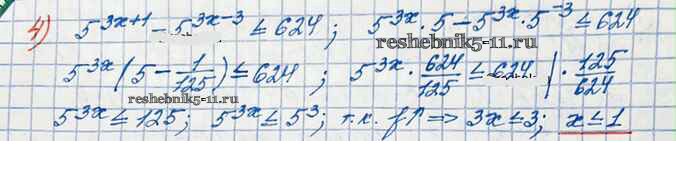 4) 5^{3x+1} - 5^{3x-3} ≤ 624; 5^{3x} · 5 - 5^{3x} · 5^{-3} ≤ 624
reshebnik5-11.ru
5^{3x}(5 - 1/125) ≤ 624; 5^{3x} · 624/125 ≤ 624 | · 125/624
reshebnik5-11.ru
5^{3x} ≤ 125; 5^{3x} ≤ 5^3; т.к. f↑ => 3x ≤ 3; x ≤ 1